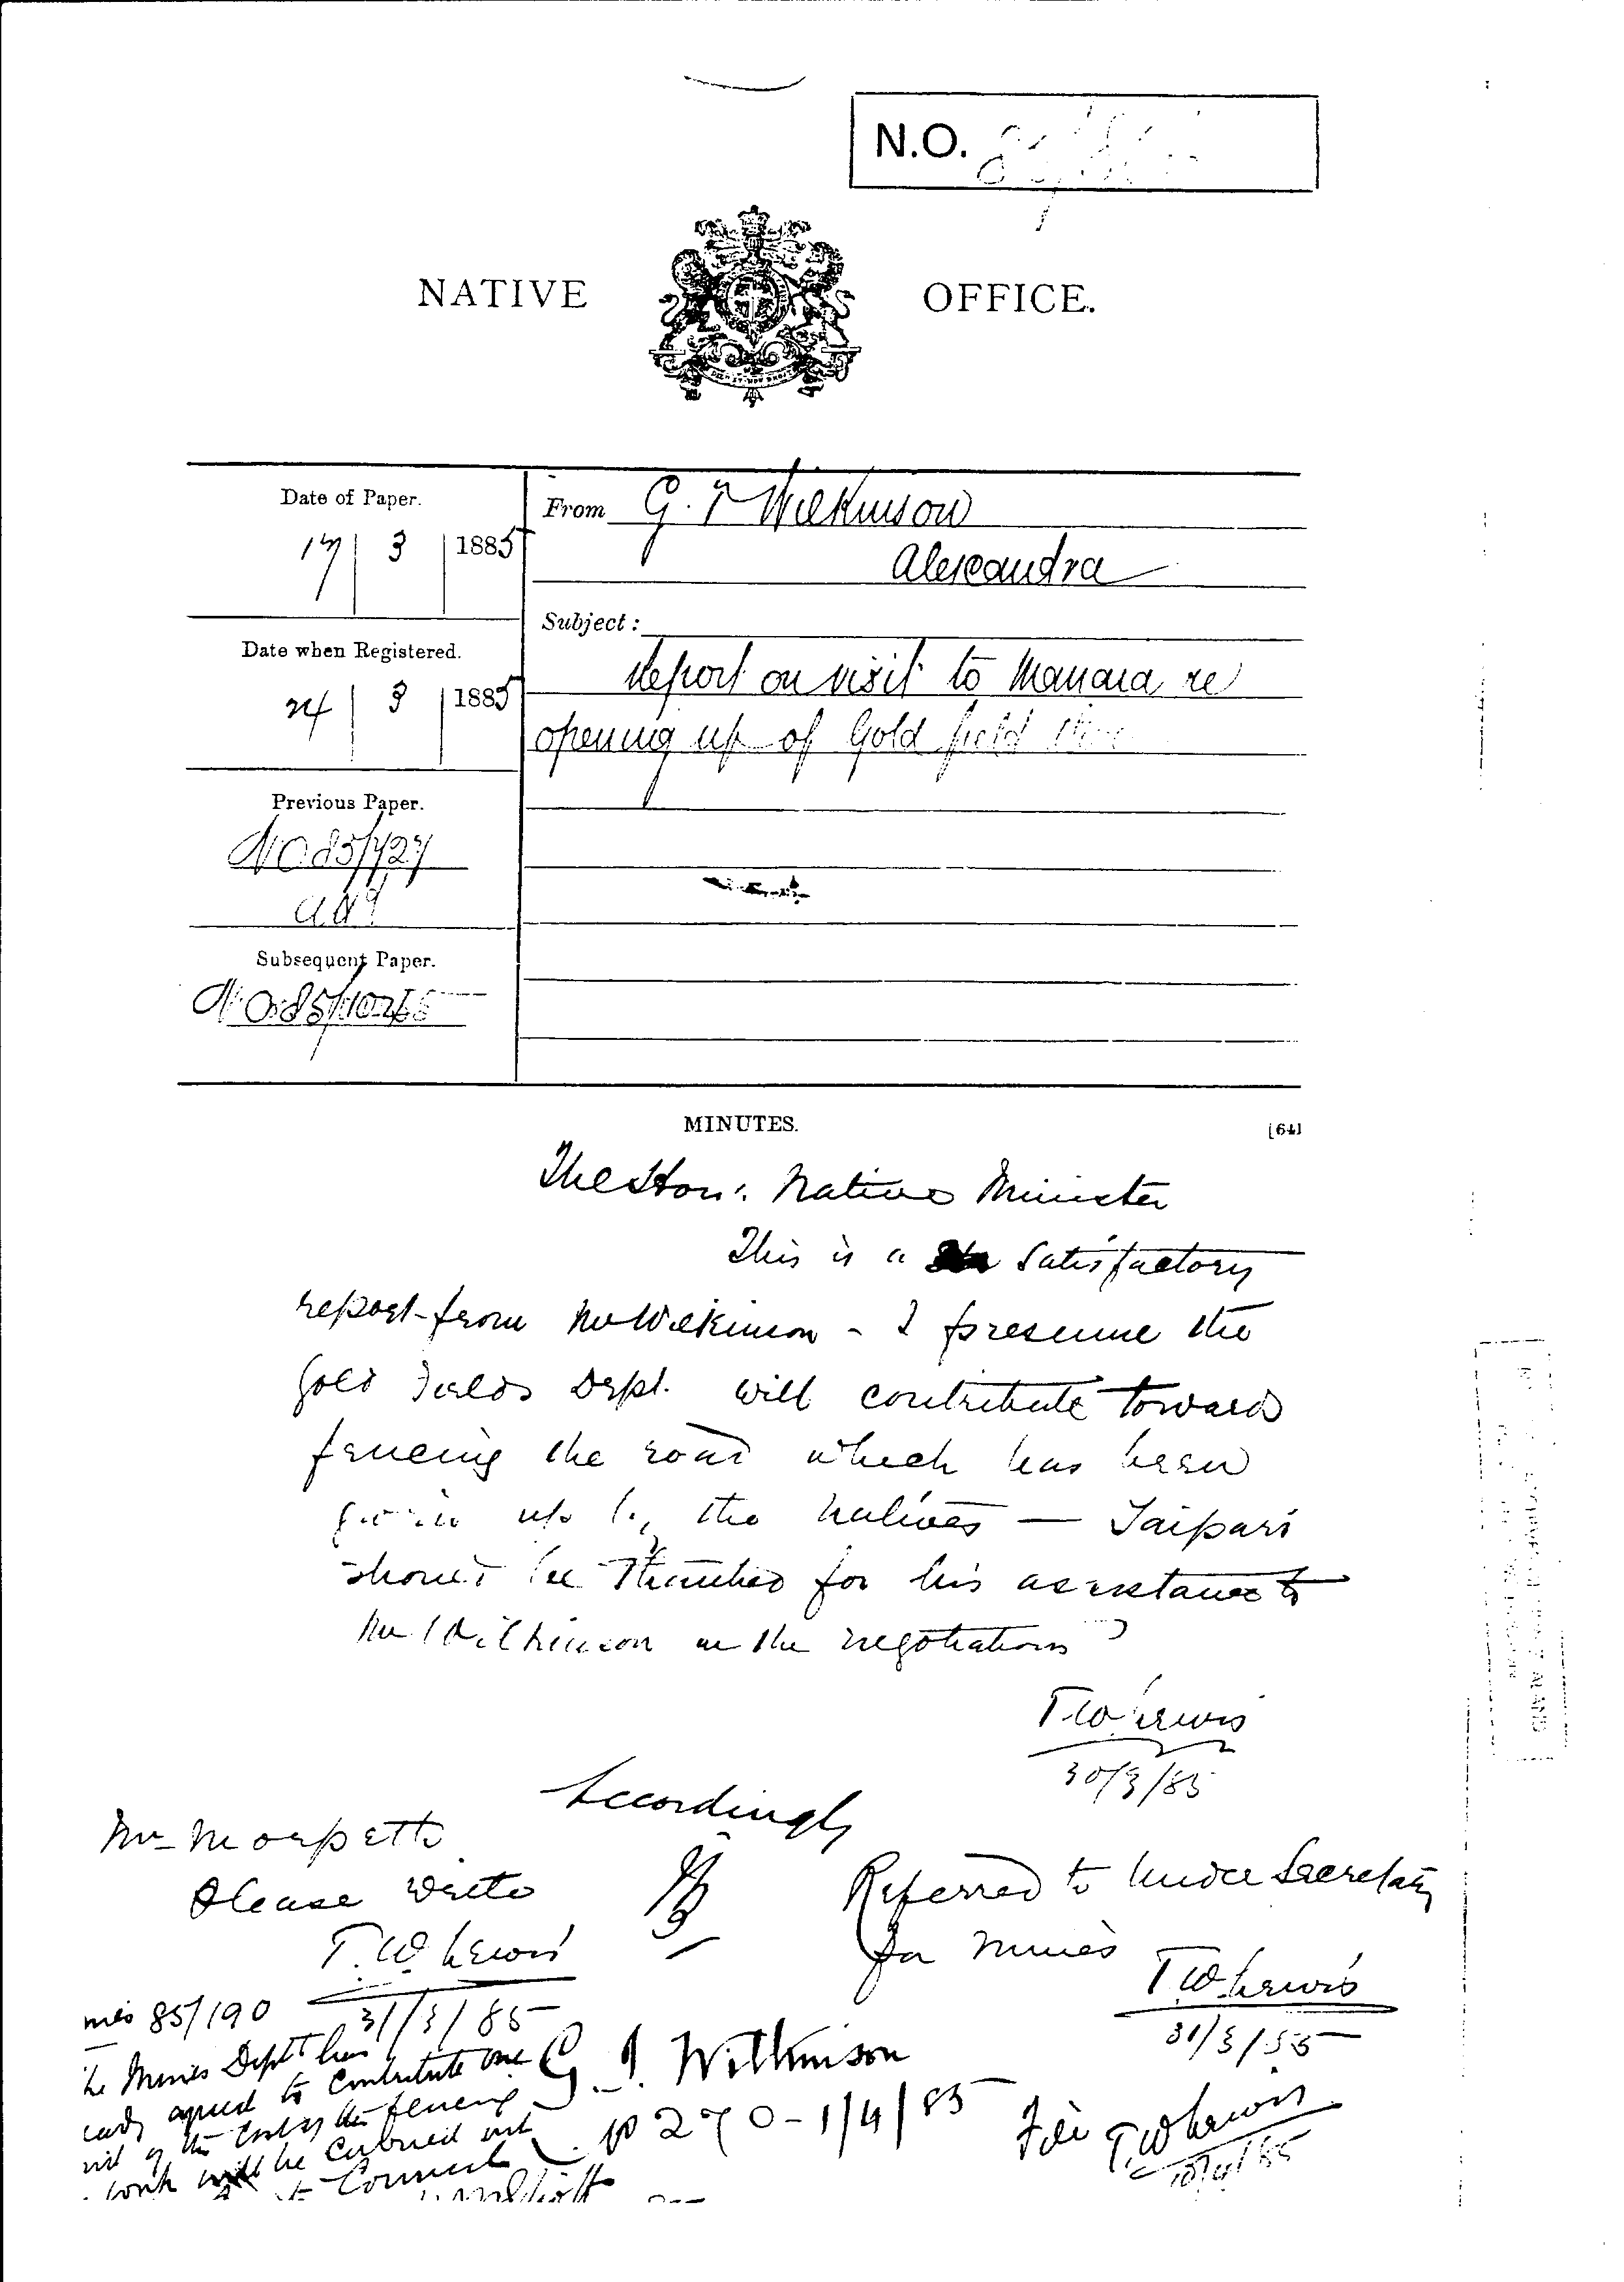 N.O.
NATIVE OFFICE.
Date of Paper.
17 | 3 | 1885
From G. T Wilkinson
Alexandra
Subject:
Report on visit to Manaia re
opening up of Gold field there
Date when Registered.
24 | 3 | 1885
Previous Paper.
NO 85/727
Subsequent Paper.
N.O. 85/1026
MINUTES.
[64]
The Hon: Native Minister
This is a satisfactory
report from Mr Wilkinson - I presume the
Gold Fields Dept. will contribute toward
fencing the road which has been
given up by the natives — Taipari
should be thanked for his assistance to
Mr Wilkinson in the negotiations?
T.W. Lewis
30/3/85
Accordingly
Mr Morpeth
Please write
T.W. Lewis
31/3/85
Referred to Under Secretary
for Mines
T W Lewis
31/3/85
mes 85/190
he Mines Dept has
agreed to contribute one
of the cost of the fencing
work will be carried out
Council
G. T. Wilkinson
270 - 1/4/85
File T.W. Lewis